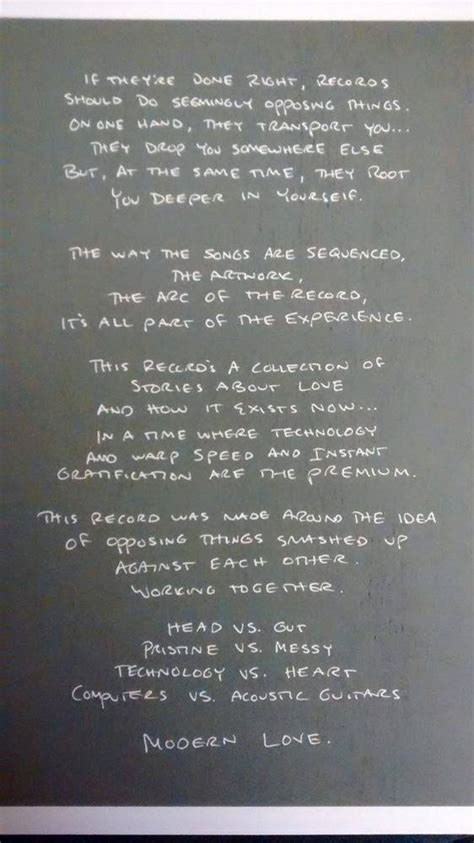 IF THEY'RE DONE RIGHT, RECORDS
SHOULD DO SEEMINGLY OPPOSING THINGS.
ON ONE HAND, THEY TRANSPORT YOU...
THEY DROP YOU SOMEWHERE ELSE
BUT, AT THE SAME TIME, THEY ROOT
YOU DEEPER IN YOURSELF.
THE WAY THE SONGS ARE SEQUENCED,
THE ARTWORK,
THE ARC OF THE RECORD,
IT'S ALL PART OF THE EXPERIENCE.
THIS RECORD'S A COLLECTION OF
STORIES ABOUT LOVE
AND HOW IT EXISTS NOW...
IN A TIME WHERE TECHNOLOGY
AND WARP SPEED AND INSTANT
GRATIFICATION ARE THE PREMIUM.
THIS RECORD WAS MADE AROUND THE IDEA
OF OPPOSING THINGS SMASHED UP
AGAINST EACH OTHER.
WORKING TOGETHER.
HEAD VS. GUT
PRISTINE VS. MESSY
TECHNOLOGY VS. HEART
COMPUTERS VS. ACOUSTIC GUITARS
MODERN LOVE.